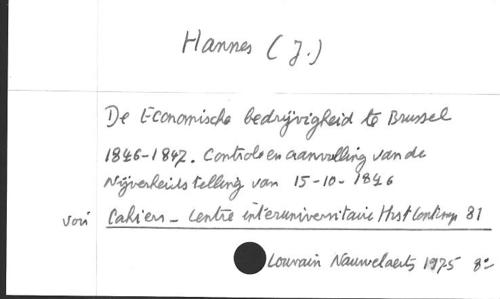 Hannes (J.)
De Economische bedrijvigheid te Brussel
1846-1847. Controle en aanvulling van de
Nijverheidstelling van 15-10-1846
voir Cahiers - Centre interuniversitaire Hist Contemp 81
Louvain Nauwelaerts 1975 8º